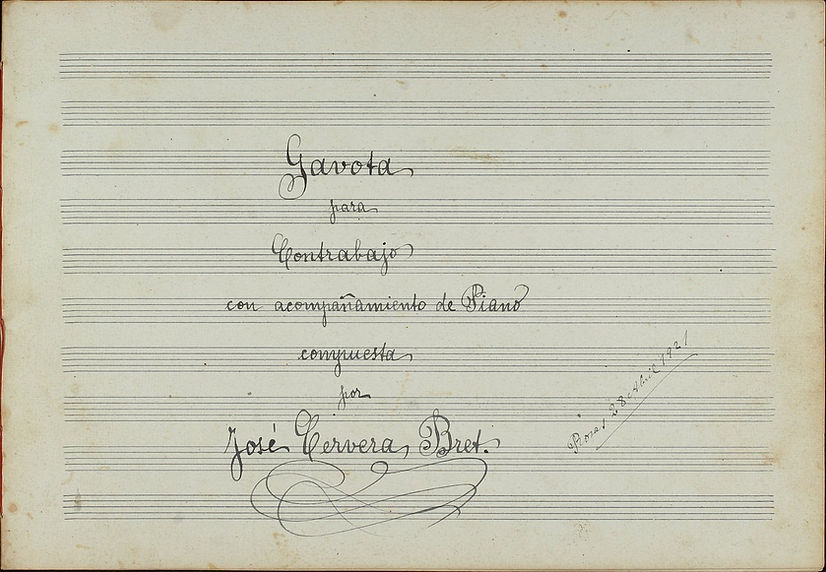 Gavota
para
Contrabajo
con acompañamiento de Piano
compuesta
por
José Cervera Bret.
28 Abril 1921